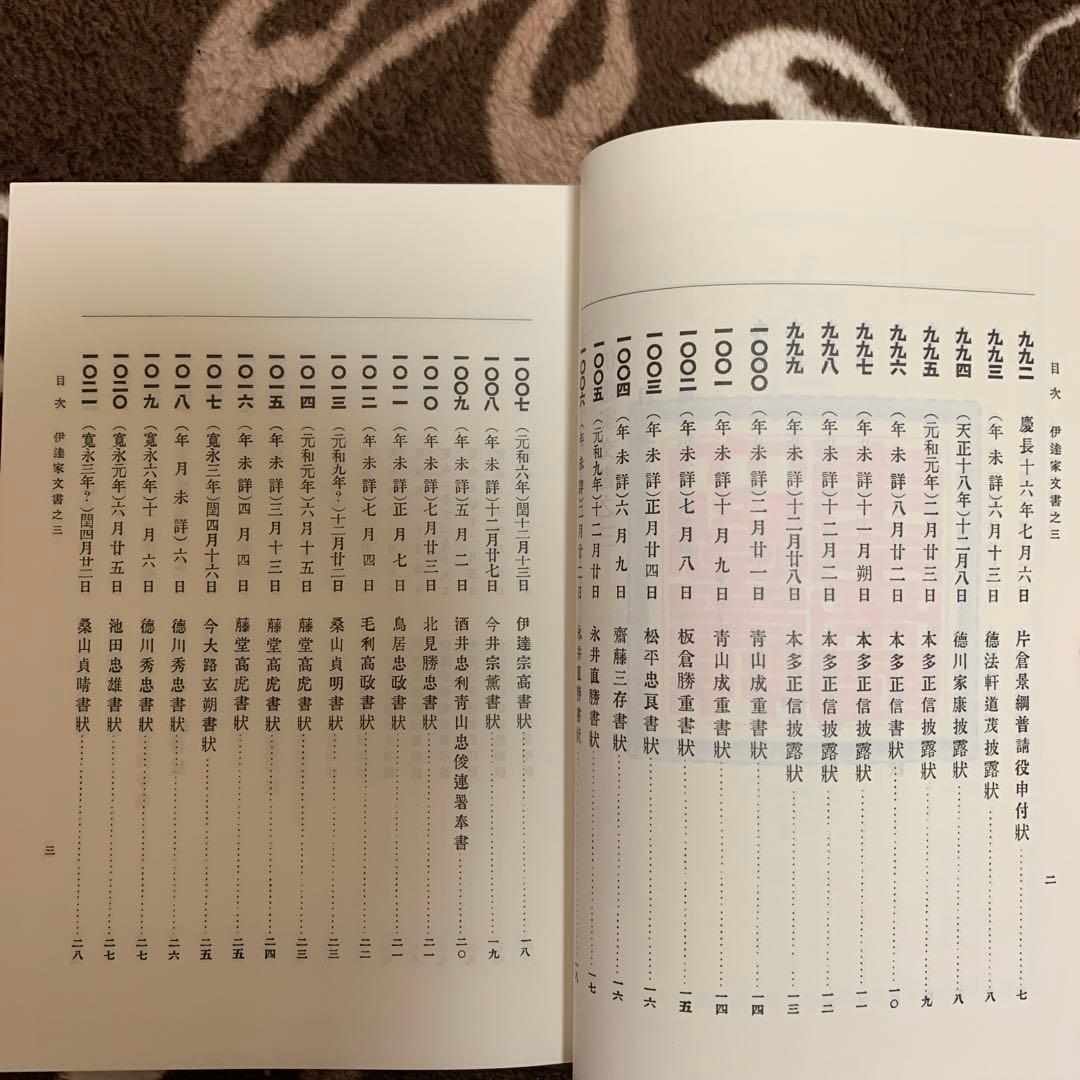 目次 伊達家文書之三
二
九九二 慶長十六年七月六日 片倉景綱普請役申付狀 七
九九三 (年未詳)六月十三日 德法軒道茂披露狀 八
九九四 (天正十八年)十二月八日 德川家康披露狀 八
九九五 (元和元年)二月廿三日 本多正信披露狀 九
九九六 (年未詳)八月廿二日 本多正信書狀 一〇
九九七 (年未詳)十一月朔日 本多正信披露狀 一一
九九八 (年未詳)十二月二日 本多正信披露狀 一二
九九九 (年未詳)十二月廿八日 本多正信披露狀 一三
一〇〇〇 (年未詳)二月廿一日 靑山成重書狀 一四
一〇〇一 (年未詳)十月九日 靑山成重書狀 一四
一〇〇二 (年未詳)七月八日 板倉勝重書狀 一五
一〇〇三 (年未詳)正月廿四日 松平忠良書狀 一六
一〇〇四 (年未詳)六月九日 齋藤三存書狀 一六
一〇〇五 (元和九年)十二月廿日 永井直勝書狀 一七
一〇〇六 (年未詳)二月廿二日 永井直勝書狀 一八
一〇〇七 (元和六年)閏十二月十三日 伊達宗高書狀 一八
一〇〇八 (年未詳)十二月廿七日 今井宗薰書狀 一九
一〇〇九 (年未詳)五月二日 酒井忠利靑山忠俊連署奉書 二〇
一〇一〇 (年未詳)七月廿三日 北見勝忠書狀 二一
一〇一一 (年未詳)正月七日 鳥居忠政書狀 二一
一〇一二 (年未詳)七月四日 毛利高政書狀 二二
一〇一三 (元和九年?)十二月廿二日 桑山貞明書狀 二三
一〇一四 (元和元年)六月十五日 藤堂高虎書狀 二三
一〇一五 (年未詳)三月十三日 藤堂高虎書狀 二四
一〇一六 (年未詳)四月四日 藤堂高虎書狀 二五
一〇一七 (寬永三年?)閏四月十六日 今大路玄朔書狀 二五
一〇一八 (年月未詳)六日 德川秀忠書狀 二六
一〇一九 (寬永六年)十月六日 德川秀忠書狀 二七
一〇二〇 (寬永元年)六月廿五日 池田忠雄書狀 二七
一〇二一 (寬永三年?)閏四月廿二日 桑山貞晴書狀 二八
目次 伊達家文書之三
三